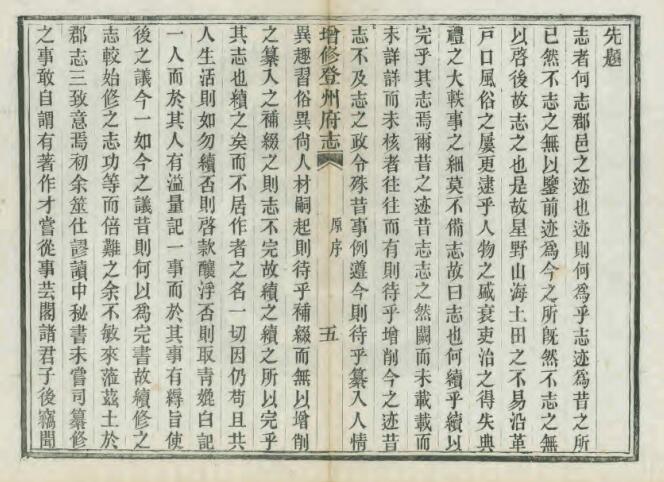 先題
志者何志郡邑之迹也迹則何爲乎志迹爲昔之所
已然不志之無以鑒前迹爲今之所旣然不志之無
以啓後故志之也是故星野山海土田之不易沿革
戸口風俗之屢更逮乎人物之盛衰吏治之得失典
禮之大軼事之細莫不備志故曰志也何續乎續以
完乎其志焉爾昔之迹昔志志之然闕而未載載而
未詳詳而未核者往往而有則待乎增削今之迹昔
志不及志之政令殊昔事例遵今則待乎纂入人情
增修登州府志
原序
五
異趣習俗異尙人材嗣起則待乎補綴而無以增削
之纂入之補綴之則志不完故續之續之所以完乎
其志也續之矣而不居作者之名一切因仍苟且共
人生活則如勿續否則啓款釀浮否則取靑媲白記
一人而於其人有溢量記一事而於其事有釋旨使
後之議今一如今之議昔則何以爲完書故續修之
志較始修之志功等而倍難之余不敏來蒞茲土於
郡志三致意焉初余筮仕謬讀中秘書未嘗司纂修
之事敢自謂有著作才嘗從事芸閣諸君子後竊聞